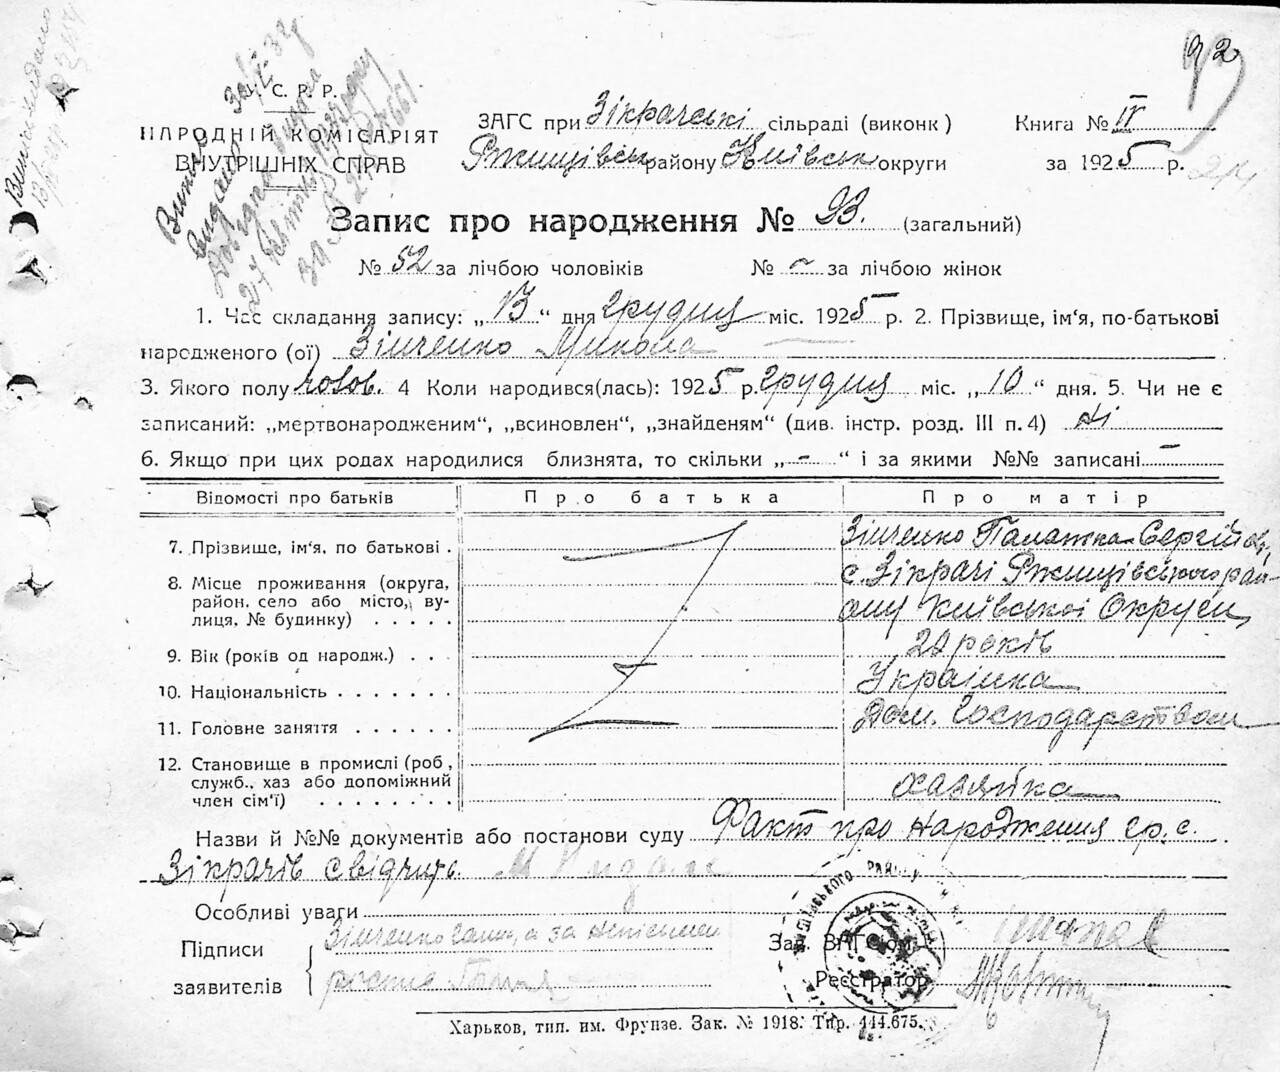 92
У. С. Р. Р.
НАРОДНІЙ КОМІСАРІЯТ
ВНУТРІШНІХ СПРАВ
ЗАГС при Зікрачські сільраді (виконк)
Ржищівськ району Київськ округи
Книга № IV
за 1925 р.
Запис про народження № 93. (загальний)
№ 52 за лічбою чоловіків № – за лічбою жінок
1. Час складання запису: „13“ дня грудня міс. 1925 р. 2. Прізвище, ім‘я, по-батькові
народженого (ої) Зінченко Микола
3. Якого полу чолов. 4 Коли народився(лась): 1925 р. грудня міс. „10“ дня. 5. Чи не є
записаний: „мертвонародженим“, „всиновлен“, „знайденям“ (див. інстр. розд. III п. 4) ні
6. Якщо при цих родах народилися близнята, то скільки „–“ і за якими №№ записані –
Відомості про батьків Про батька Про матір
7. Прізвище, ім‘я, по батькові . Зінченко Палажка Сергійов,
8. Місце проживання (округа, район, село або місто, вулиця, № будинку) . . . . . с. Зікрачі Ржищівського рай-
ону Київської Округи,
9. Вік (років од народж.) . . . 20 років
10. Національність . . . . . . . Українка
11. Головне заняття . . . . . . Дом. Господарством
12. Становище в промислі (роб, служб., хаз або допоміжний член сім‘ї) . . . . . . . . хазяйка
Назви й №№ документів або постанови суду Факт про народження гр. с.
Зікрачів свідчить
Особливі уваги
Підписи
заявителів
Зінченко
Зав. ЗАГС‘ом
Реєстратор
Харьков, тип. им. Фрунзе. Зак. № 1918. Тир. 444.675.